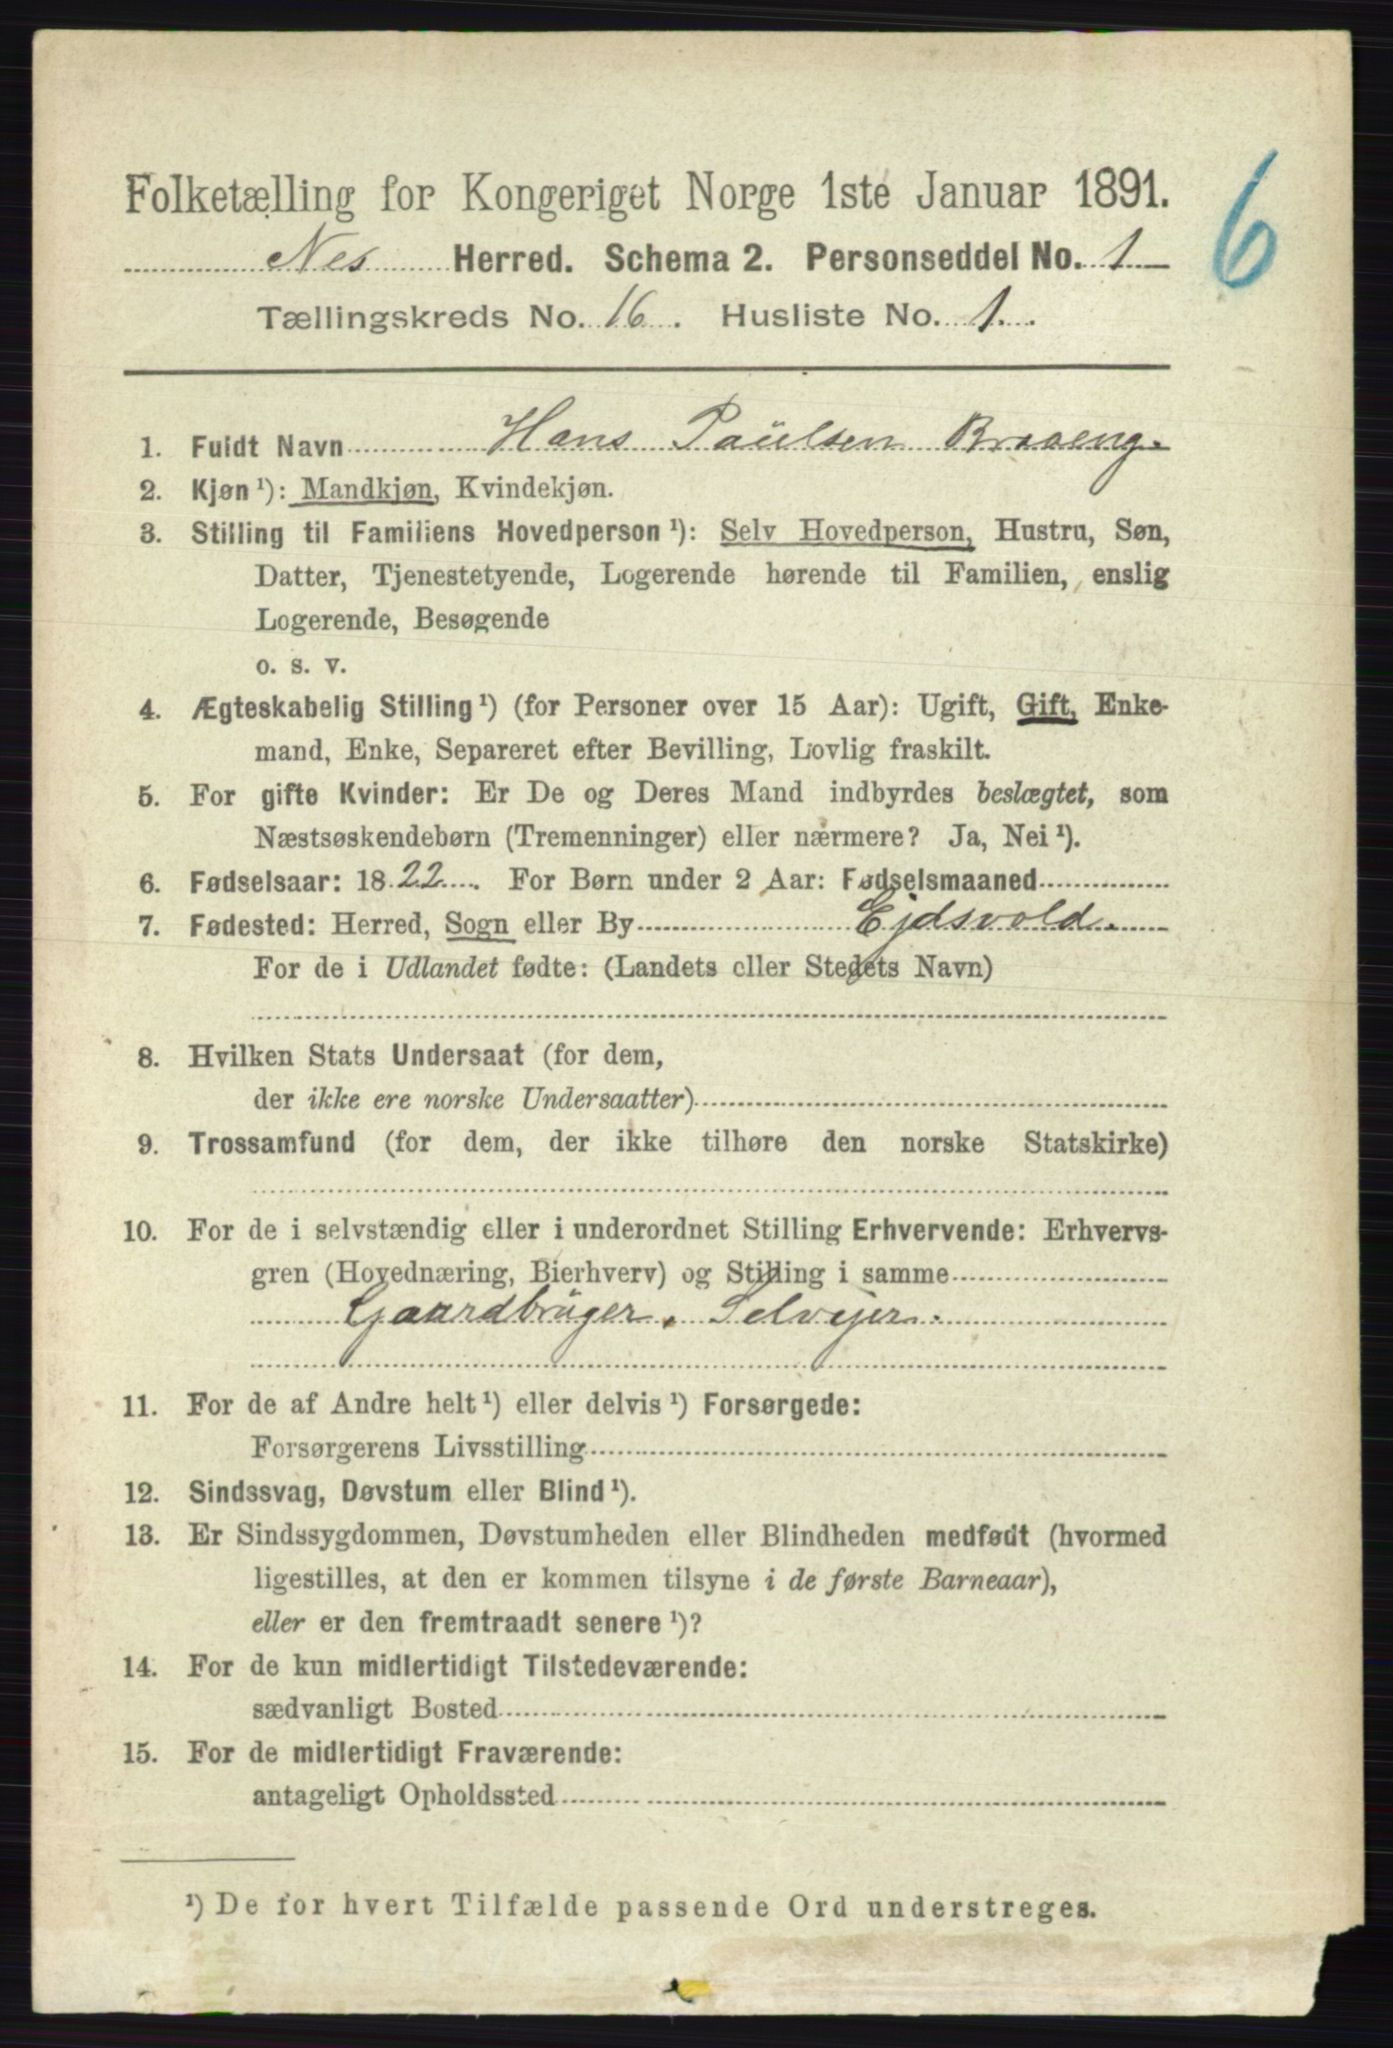 6
Folketælling for Kongeriget Norge 1ste Januar 1891.
Nes Herred. Schema 2. Personseddel No. 1
Tællingskreds No. 16. Husliste No. 1.
1. Fuldt Navn Hans Paulsen Braaeng.
2. Kjøn ¹): Mandkjøn, Kvindekjøn.
3. Stilling til Familiens Hovedperson ¹): Selv Hovedperson, Hustru, Søn,
Datter, Tjenestetyende, Logerende hørende til Familien, enslig
Logerende, Besøgende
o. s. v.
4. Ægteskabelig Stilling ¹) (for Personer over 15 Aar): Ugift, Gift, Enke-
mand, Enke, Separeret efter Bevilling, Lovlig fraskilt.
5. For gifte Kvinder: Er De og Deres Mand indbyrdes beslægtet, som
Næstsøskendebørn (Tremenninger) eller nærmere? Ja, Nei ¹).
6. Fødselsaar: 1822. For Børn under 2 Aar: Fødselsmaaned
7. Fødested: Herred, Sogn eller By Ejdsvold.
For de i Udlandet fødte: (Landets eller Stedets Navn)
8. Hvilken Stats Undersaat (for dem,
der ikke ere norske Undersaatter)
9. Trossamfund (for dem, der ikke tilhøre den norske Statskirke)
10. For de i selvstændig eller i underordnet Stilling Erhvervende: Erhvervs-
gren (Hovednæring, Bierhverv) og Stilling i samme
Gaardbruger, Selvejer.
11. For de af Andre helt ¹) eller delvis ¹) Forsørgede:
Forsørgerens Livsstilling
12. Sindssvag, Døvstum eller Blind ¹).
13. Er Sindssygdommen, Døvstumheden eller Blindheden medfødt (hvormed
ligestilles, at den er kommen tilsyne i de første Barneaar),
eller er den fremtraadt senere ¹)?
14. For de kun midlertidigt Tilstedeværende:
sædvanligt Bosted
15. For de midlertidigt Fraværende:
antageligt Opholdssted
¹) De for hvert Tilfælde passende Ord understreges.